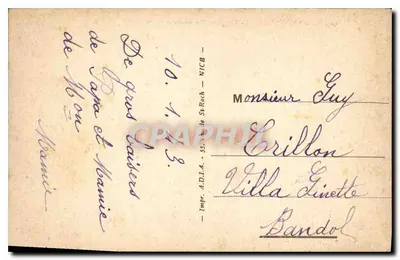 10. 1. 43.
De gros baisers
de Papa et Mamie
de Mon
Mamie
Impr. A.D.I.A. - 55, de St-Roch - NICE
Monsieur Guy
Crillon
Villa Ginette
Bandol